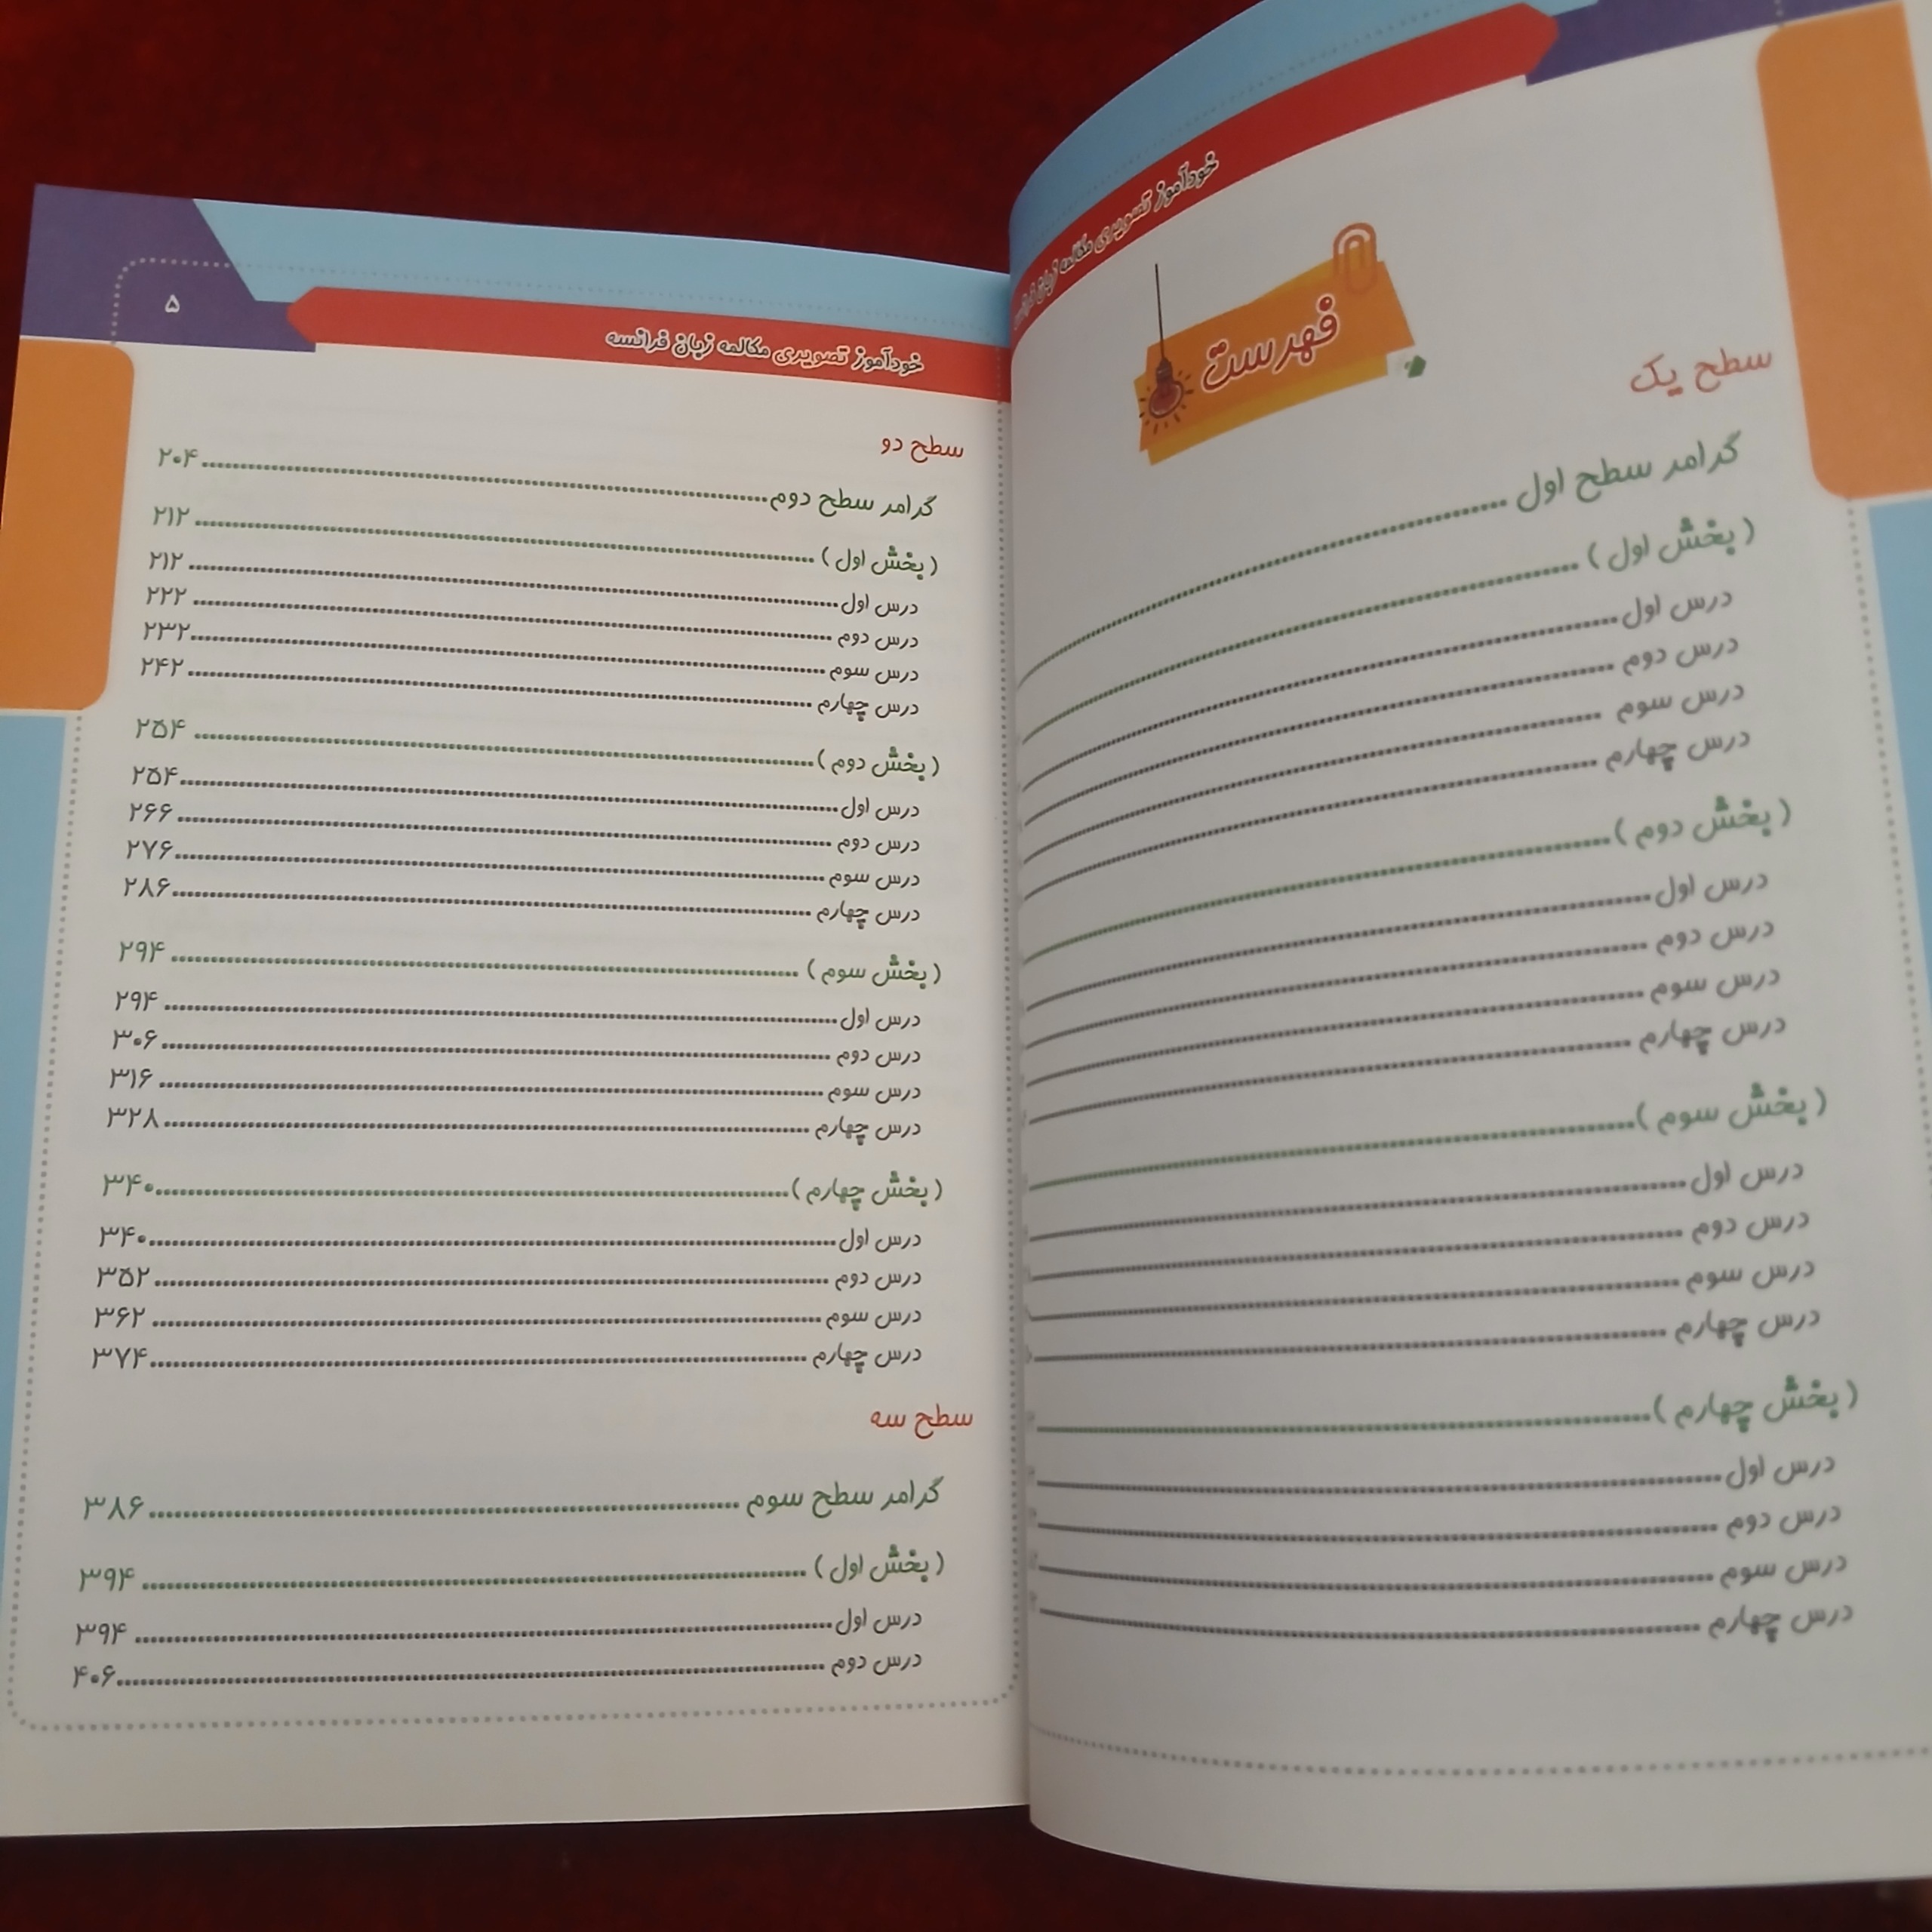 خودآموز تصویری مکالمه زبان فرانسه
فهرست
سطح یک
گرامر سطح اول
( بخش اول )
درس اول
درس دوم
درس سوم
درس چهارم
( بخش دوم )
درس اول
درس دوم
درس سوم
درس چهارم
( بخش سوم )
درس اول
درس دوم
درس سوم
درس چهارم
( بخش چهارم )
درس اول
درس دوم
درس سوم
درس چهارم
۵
خودآموز تصویری مکالمه زبان فرانسه
سطح دو
گرامر سطح دوم ۲۰۴
( بخش اول ) ۲۱۲
درس اول ۲۱۲
درس دوم ۲۲۲
درس سوم ۲۳۲
درس چهارم ۲۴۲
( بخش دوم ) ۲۵۴
درس اول ۲۵۴
درس دوم ۲۶۶
درس سوم ۲۷۶
درس چهارم ۲۸۶
( بخش سوم ) ۲۹۴
درس اول ۲۹۴
درس دوم ۳۰۶
درس سوم ۳۱۶
درس چهارم ۳۲۸
( بخش چهارم ) ۳۴۰
درس اول ۳۴۰
درس دوم ۳۵۲
درس سوم ۳۶۲
درس چهارم ۳۷۴
سطح سه
گرامر سطح سوم ۳۸۶
( بخش اول ) ۳۹۴
درس اول ۳۹۴
درس دوم ۴۰۶